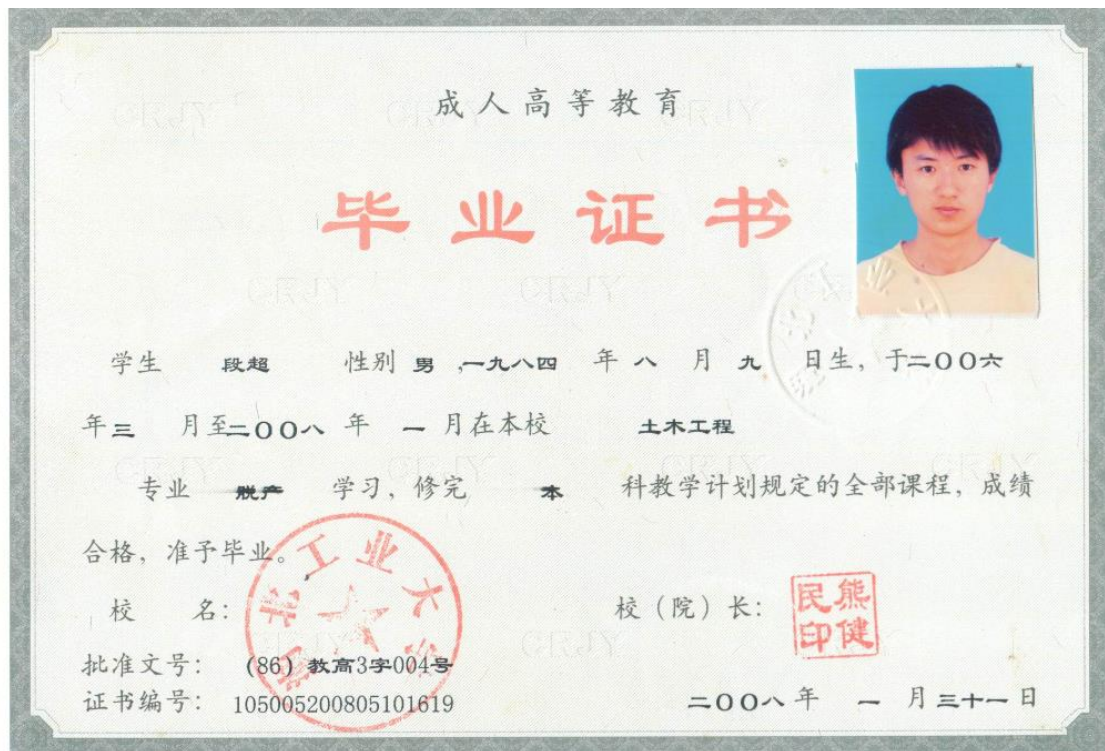 成人高等教育
毕业证书
学生 段超 性别 男 ,一九八四 年 八 月 九 日生，于二〇〇六
年三 月至二〇〇八 年 一 月在本校 土木工程
专业 脱产 学习，修完 本 科教学计划规定的全部课程，成绩
合格，准予毕业。
校 名： 湖北工业大学
校（院）长： 熊健民印
批准文号： (86) 教高3字004号
证书编号： 105005200805101619
二〇〇八 年 一 月 三十一 日